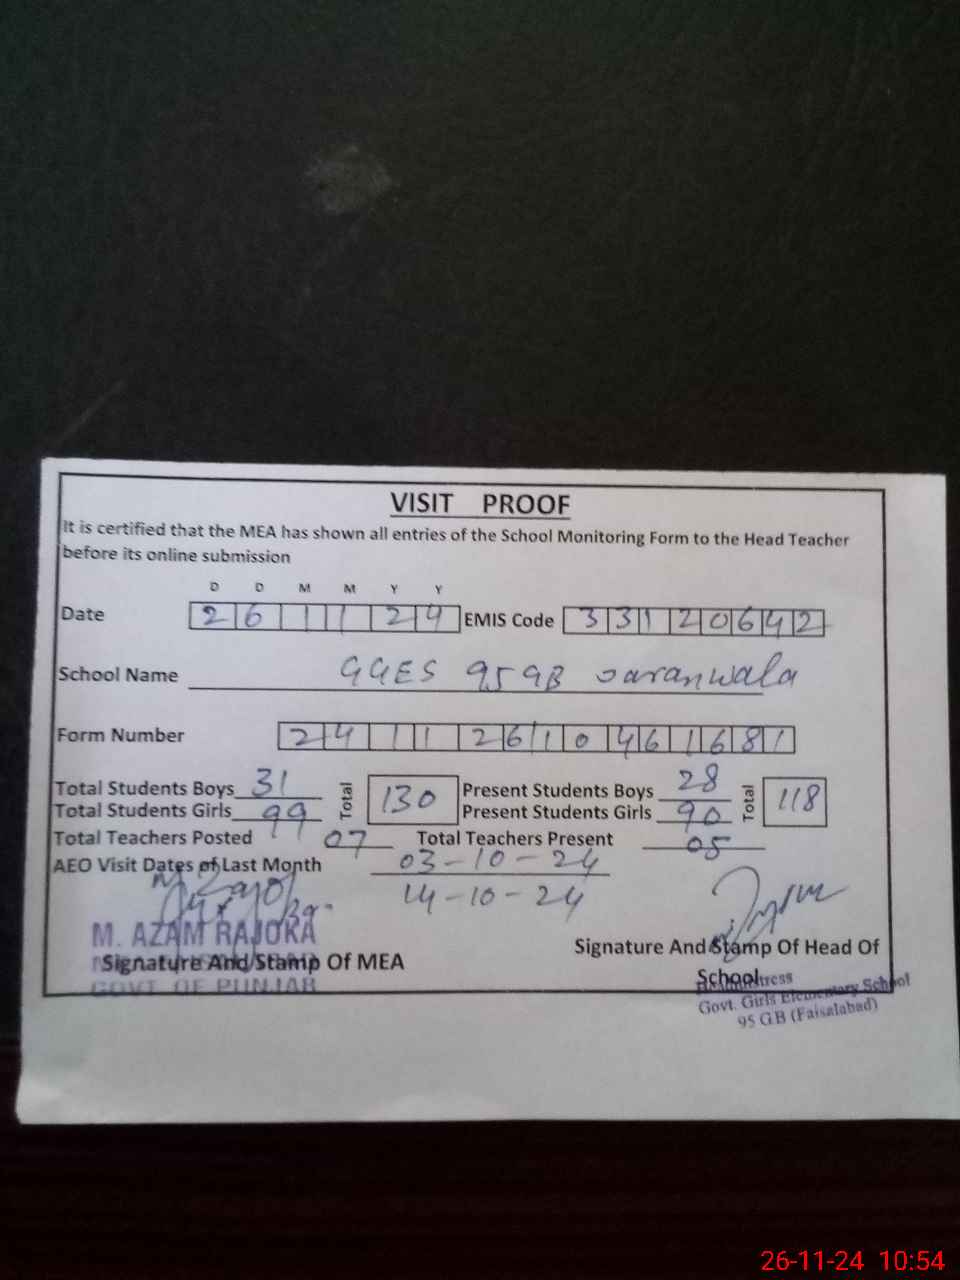 VISIT PROOF
It is certified that the MEA has shown all entries of the School Monitoring Form to the Head Teacher
before its online submission
D D M M Y Y
Date 26 11 24 EMIS Code 33120642
School Name GGES 95 GB Jaranwala
Form Number 24112610461681
Total Students Boys 31 Total 130 Present Students Boys 28 Total 118
Total Students Girls 99 Present Students Girls 90
Total Teachers Posted 07 Total Teachers Present 05
AEO Visit Dates of Last Month 03-10-24
14-10-24
M. AZAM RAJOKA
Signature And Stamp Of MEA
GOVT OF PUNJAB
Signature And Stamp Of Head Of
School
Headmistress
Govt. Girls Elementary School
95 GB (Faisalabad)
26-11-24 10:54